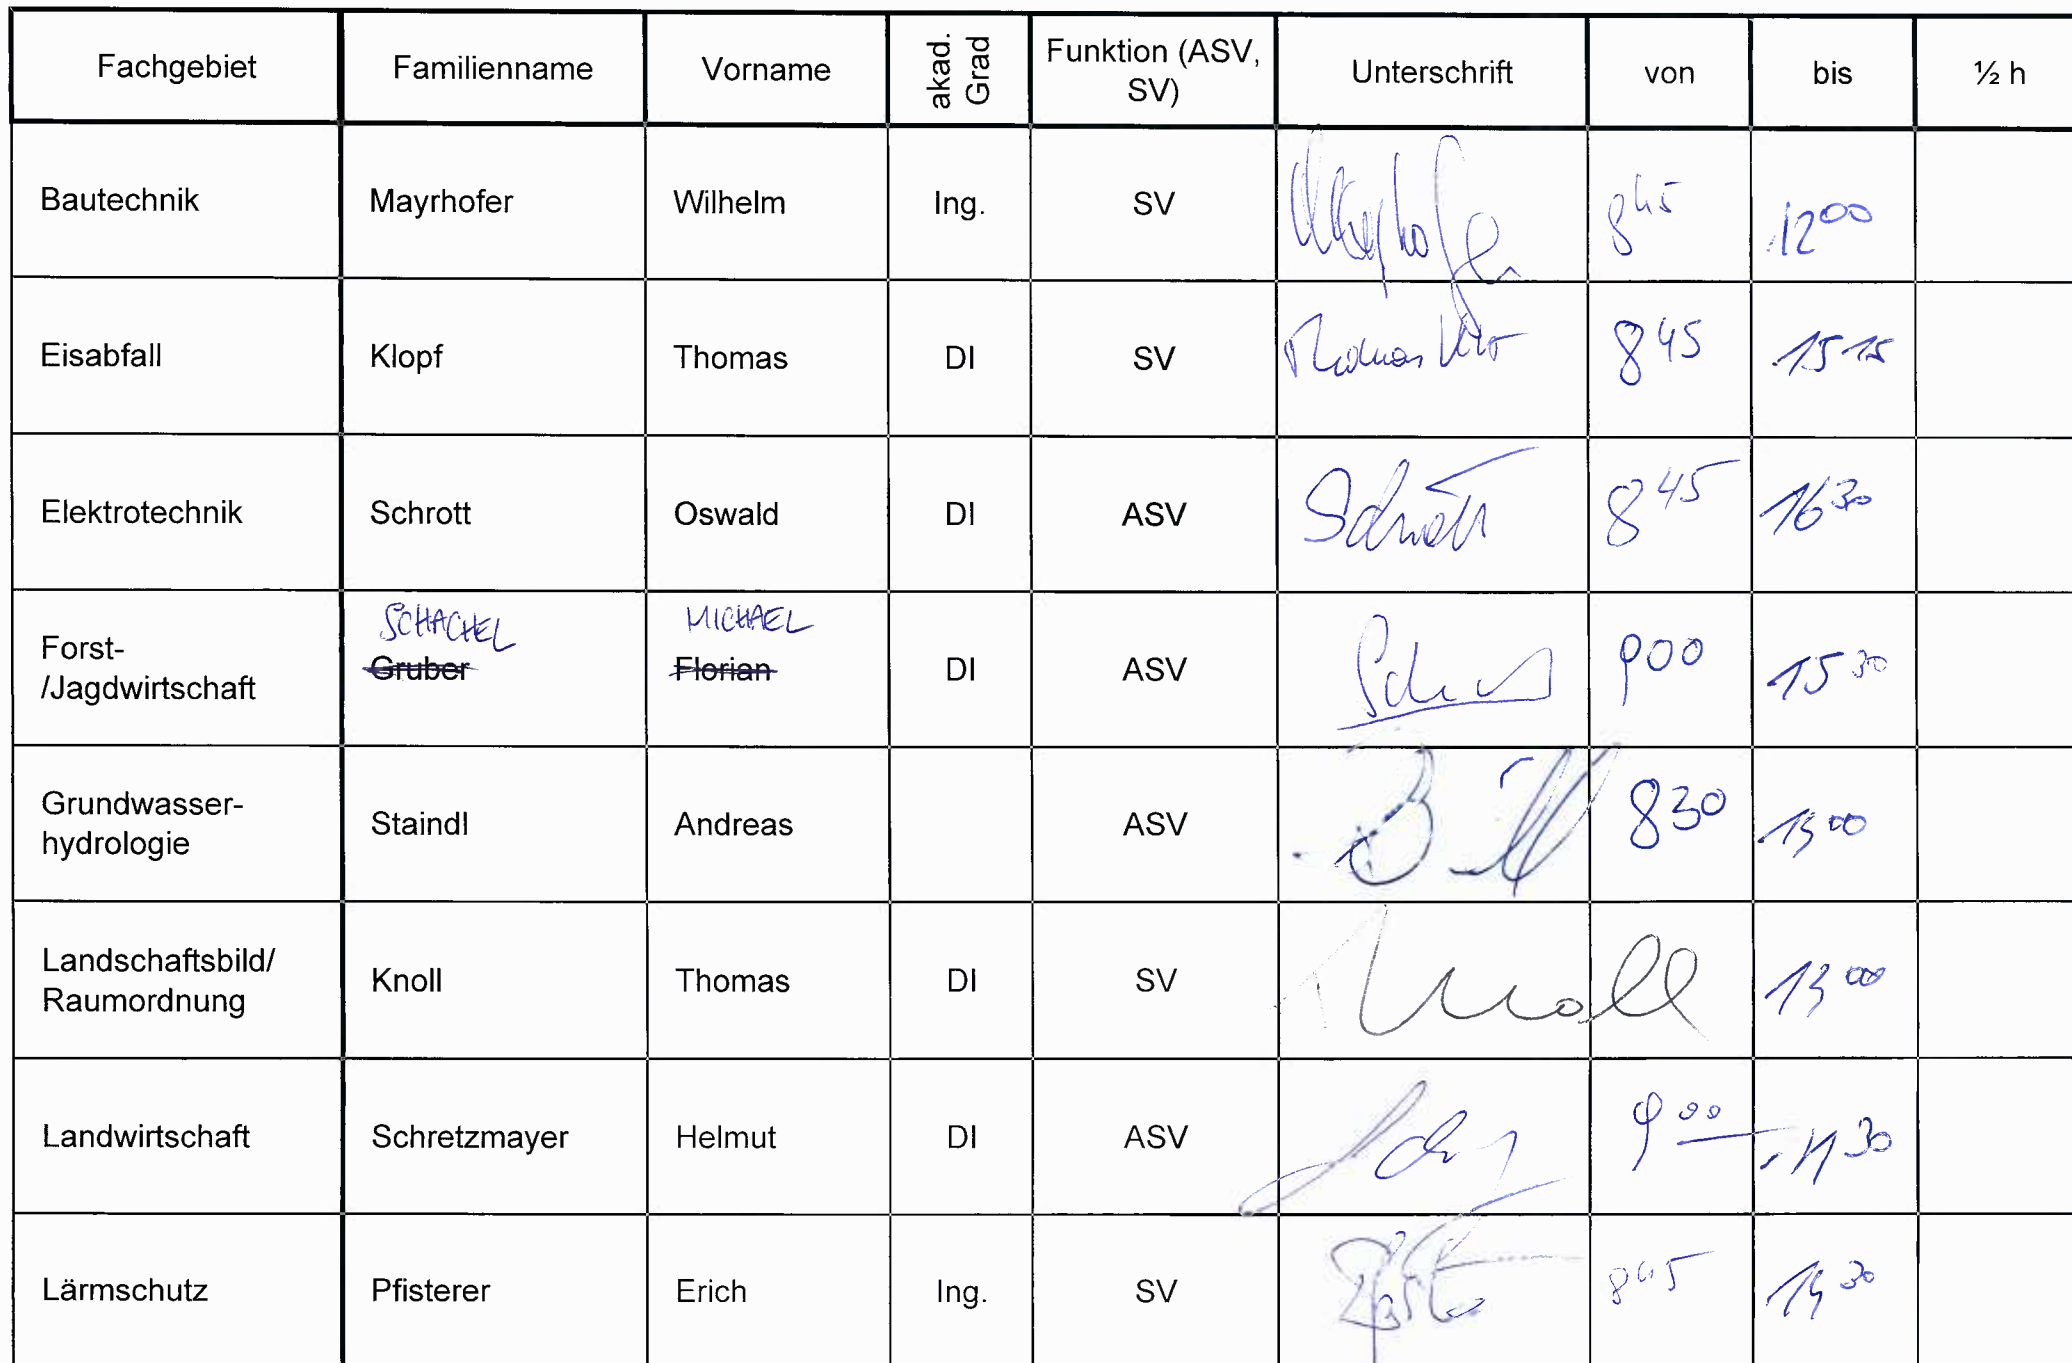 Fachgebiet Familienname Vorname akad. Grad Funktion (ASV, SV) Unterschrift von bis ½ h
Bautechnik Mayrhofer Wilhelm Ing. SV Mayrhofer 8 45 12 00
Eisabfall Klopf Thomas DI SV Thomas 8 45 15 15
Elektrotechnik Schrott Oswald DI ASV Schrott 8 45 16 30
SCHACHEL MICHAEL
Forst-
/Jagdwirtschaft Gruber Florian DI ASV 9 00 15 30
Grundwasser-
hydrologie Staindl Andreas ASV 8 30 00
Landschaftsbild/
Raumordnung Knoll Thomas DI SV Knoll 13 00
Landwirtschaft Schretzmayer Helmut DI ASV 9 00 11 30
Lärmschutz Pfisterer Erich Ing. SV 8 45 30